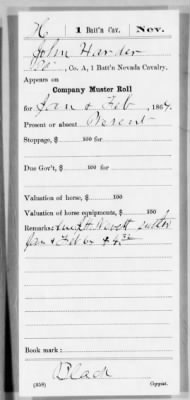 H | 1 Batt'n Cav. | Nev.
John Harder
Co. A, 1 Batt'n Nevada Cavalry.
Appears on
Company Muster Roll
for Jan & Feb, 1864.
Present or absent Present
Stoppage, $ 100 for
Due Gov't, $ 100 for
Valuation of horse, $ 100
Valuation of horse equipments, $ 100
Remarks: Sutler
Jan & Feb
Book mark:
Black
(358) Copyist.